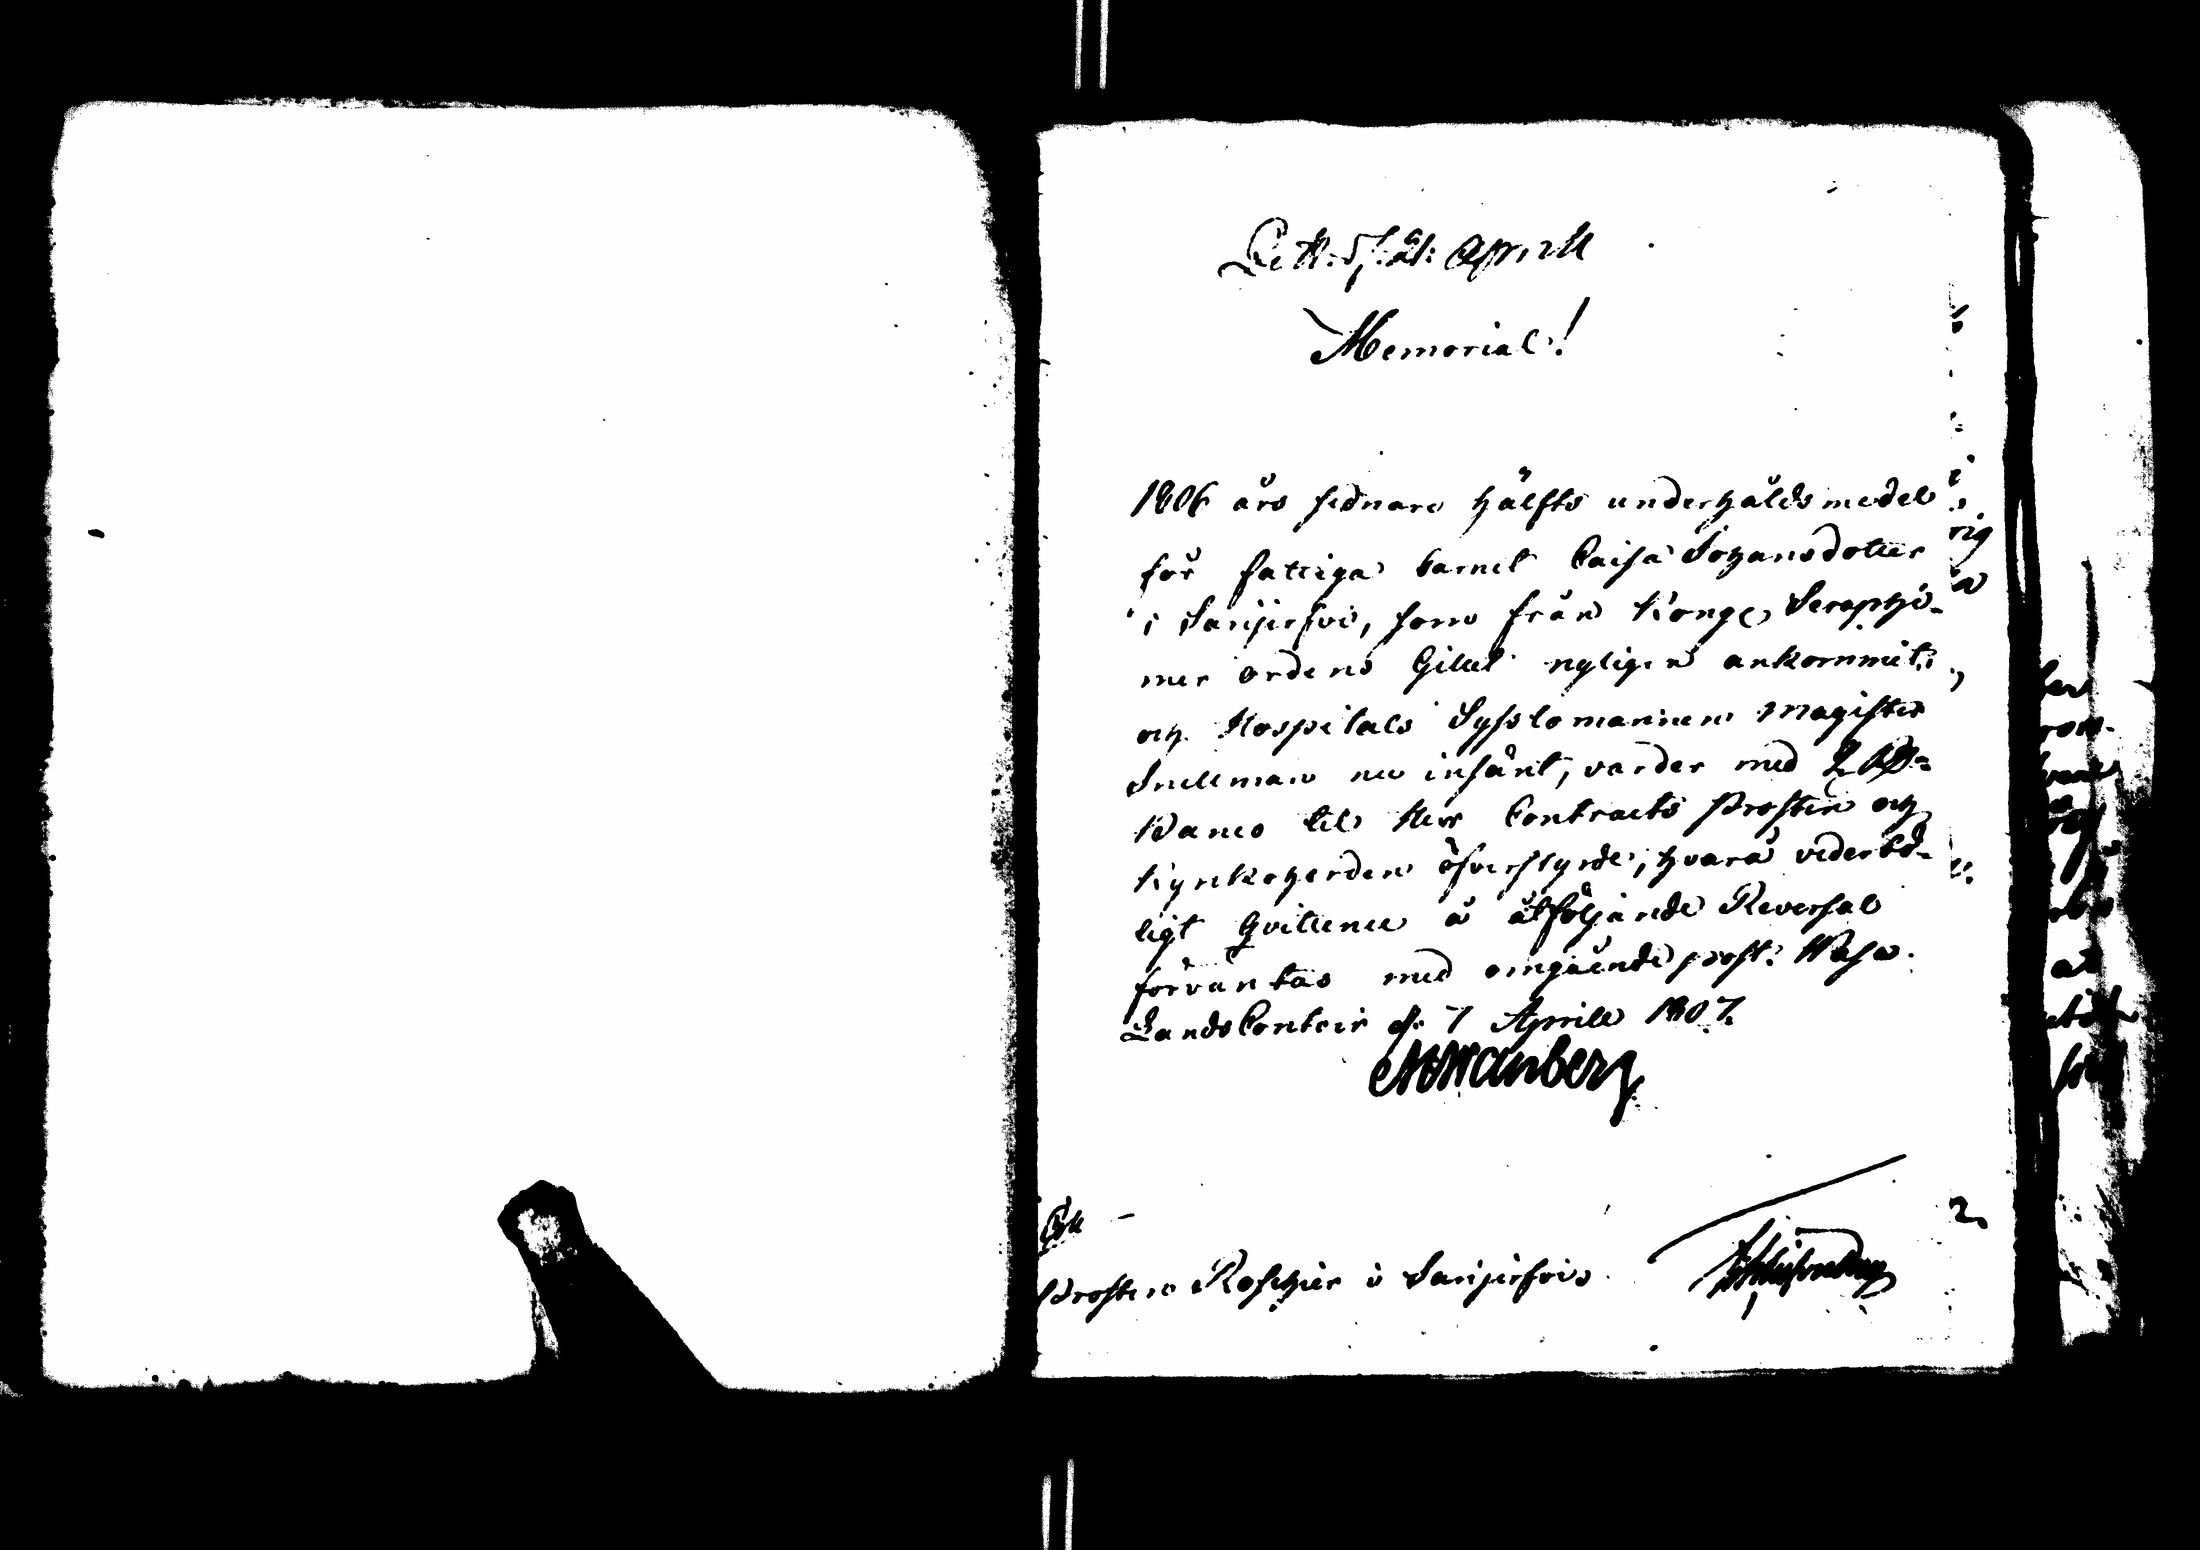 Aprill
Memorial!
1806 års sednare hälfts underhålds medel
för fattiga barnet Caisa Johansdotter
i Sarijerfvi, som från Kongl Seraphi-
mer ordens Gillet nyligen ankommit
och Hospitals Sysslomannen Magister
Snellman nu insänt, varder med 2 Rd
Banco til Herr Contracts Prosten och
Kyrkoherden öfverstyrde, hvarå vederbö-
ligt Qvittence å åtföljande Reversal
förväntas med omgående post. Wasa
Lands Contoir d. 7 Aprill 1807.
Prosten Roschier i Sarijerfvi